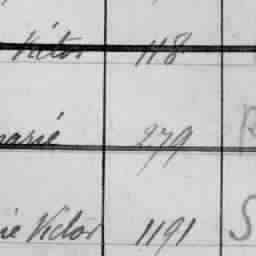 Victor 118
marié 279 R
ie Victor 1191 S